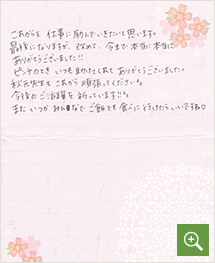 これからも 仕事に励んでいきたいと思います。
最後になりますが、改めて、今まで本当に本当に
ありがとうございました!!
ピンチのとき いつも助けてくれて ありがとうございました。
先生も これから 頑張ってください。
今後の ご活躍を 祈っています!!
また いつか みんなで ご飯でも 食べに行けたら いいですね♡